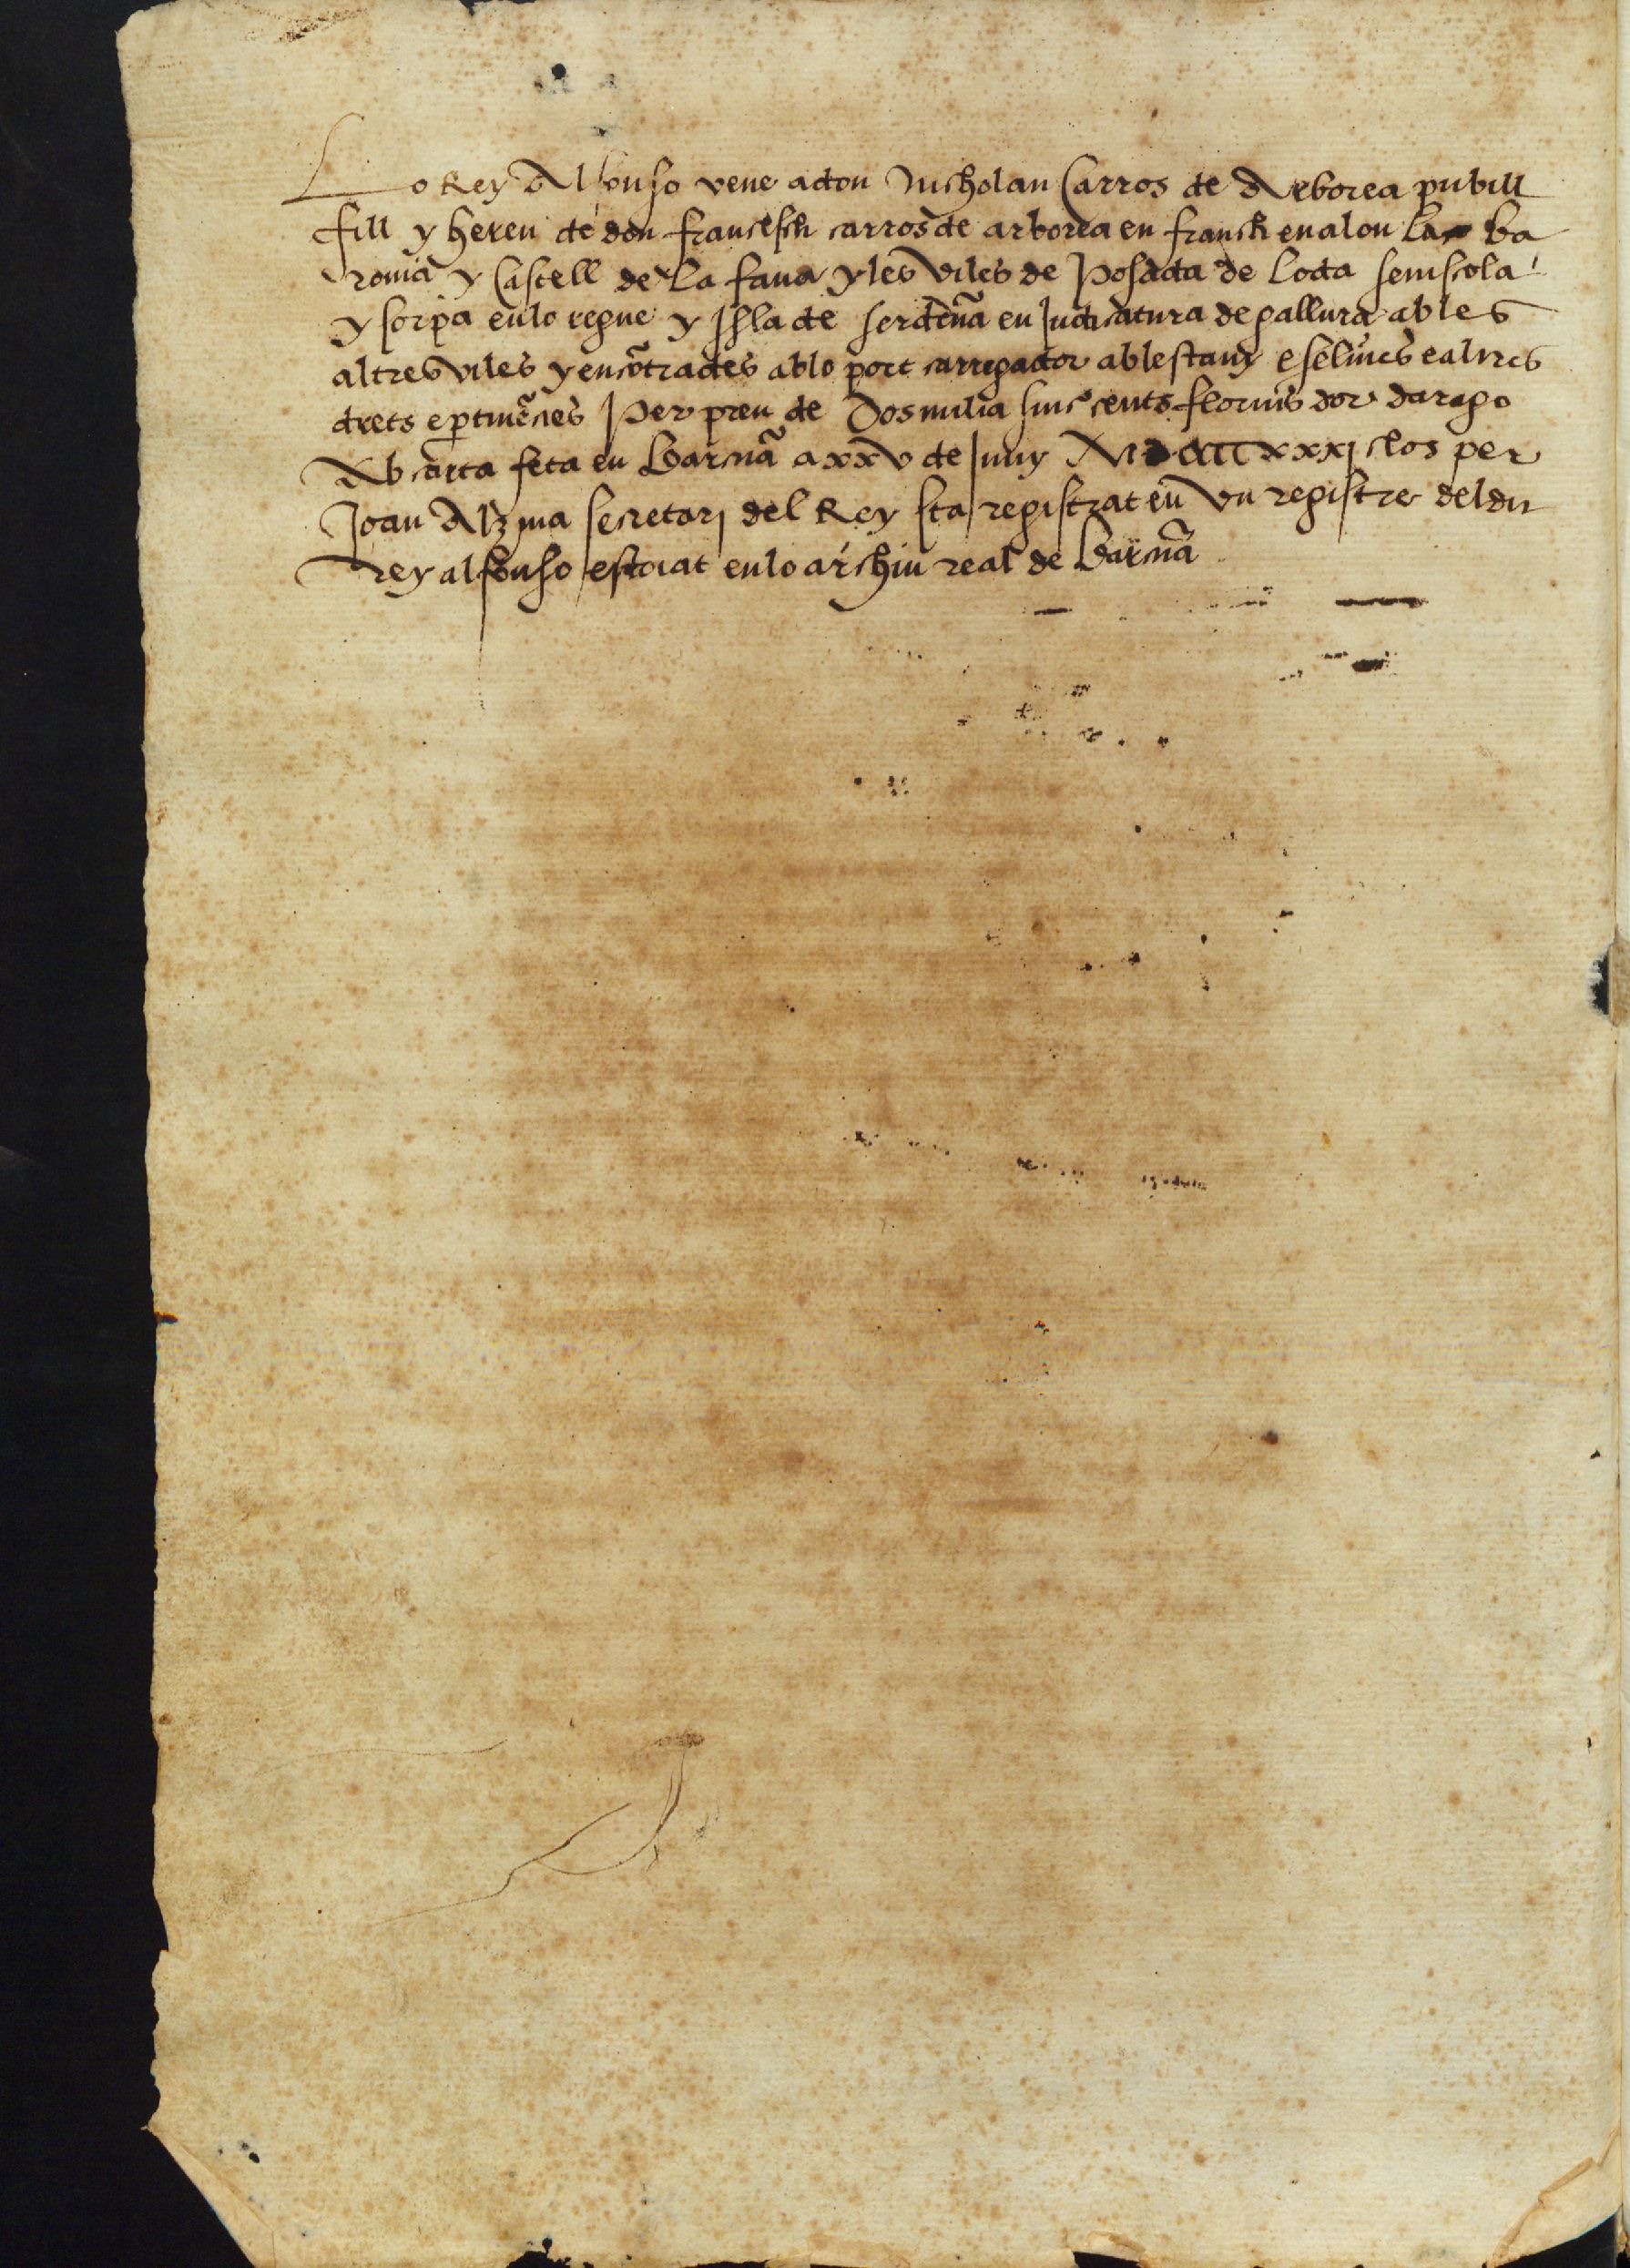 Lo Rey Alfonso vene a don Nicholau Carros de Arborea pubill
fill y hereu de don francesch carros de arborea en franch en alou la ba
ronia y Castell de la fava y les viles de Posada de Loda seniscola
y sorpa en lo regne y Isla de serdeña en Judicatura de gallura ab les
altres viles y encõtrades ab lo port carregador ab lestany e selines e altres
drets e ptinẽcies Per preu de Dos milia sinc cents florins dor darago
Ab carta feta en Barcnã a xxv de Juny M CCCCxxxj clos per
Joan Alzina secretarj del Rey sta registrat en vn registre del dit
Rey alfonso estoiat en lo archiu real de Barcnã